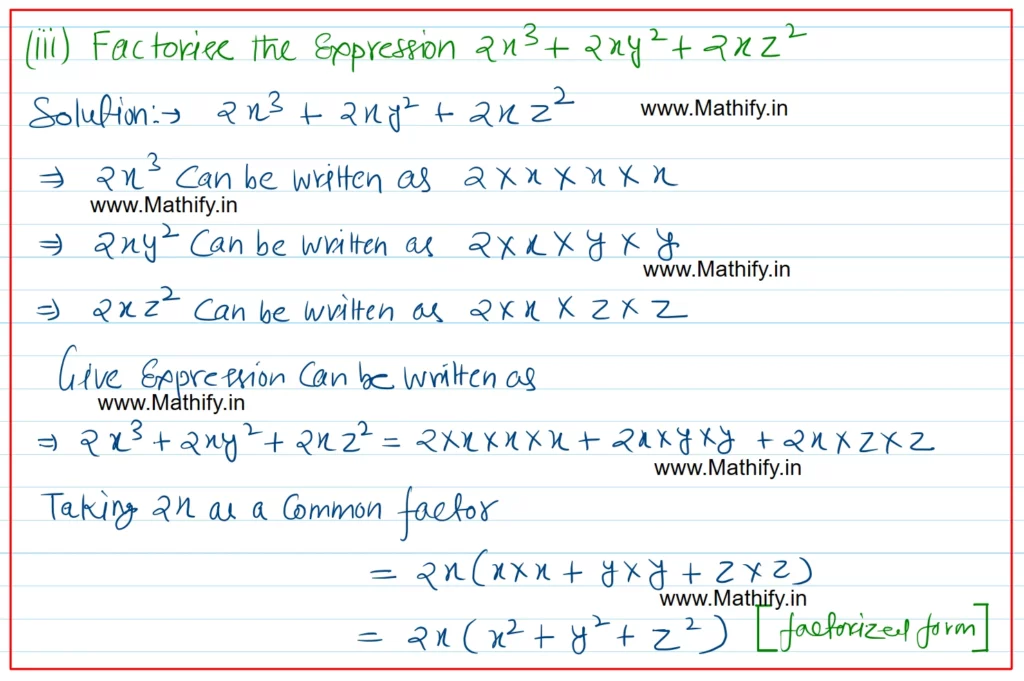 (iii) Factorise the Expression 2x³ + 2xy² + 2xz²
Solution:→ 2x³ + 2xy² + 2xz² www.Mathify.in
⇒ 2x³ Can be written as 2 × x × x × x
www.Mathify.in
⇒ 2xy² Can be written as 2 × x × y × y
www.Mathify.in
⇒ 2xz² Can be written as 2 × x × z × z
Give Expression Can be written as
www.Mathify.in
⇒ 2x³ + 2xy² + 2xz² = 2×x×x×x + 2x×y×y + 2x×z×z
www.Mathify.in
Taking 2x as a Common factor
= 2x(x×x + y×y + z×z)
www.Mathify.in
= 2x(x² + y² + z²) [factorized form]